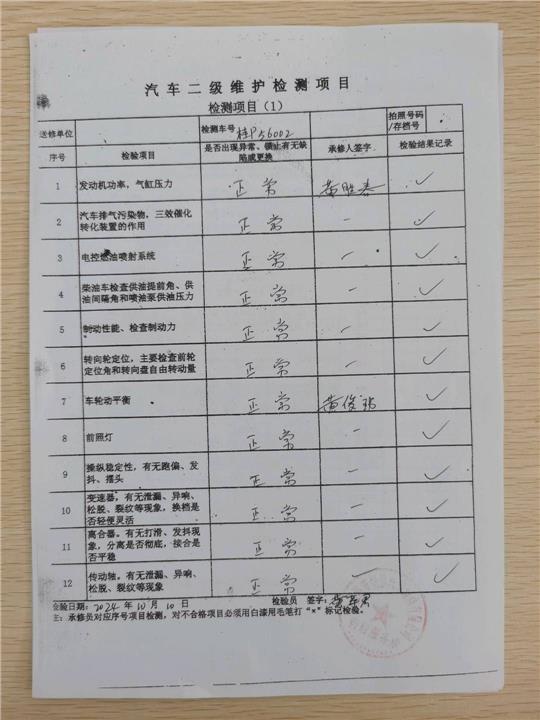 汽车二级维护检测项目
检测项目（1）
送修单位 检测车号 桂P56002 拍照号码/存档号
序号 检验项目 是否出现异常、锁止有无缺陷或更换 承修人签字 检验结果记录
1 发动机功率，气缸压力 正常 ✓
2 汽车排气污染物，三效催化转化装置的作用 正常 — ✓
3 电控燃油喷射系统 正常 — ✓
4 柴油车检查供油提前角、供油间隔角和喷油泵供油压力 正常 — ✓
5 制动性能、检查制动力 正常 — ✓
6 转向轮定位，主要检查前轮定位角和转向盘自由转动量 正常 — ✓
7 车轮动平衡 正常 ✓
8 前照灯 正常 — ✓
9 操纵稳定性，有无跑偏、发抖、摆头 正常 — ✓
10 变速器。有无泄漏、异响、松脱、裂纹等现象，换档是否轻便灵活 正常 — ✓
11 离合器。有无打滑、发抖现象，分离是否彻底，接合是否平稳 正常 — ✓
12 传动轴。有无泄漏、异响、松脱、裂纹等现象 正常 — ✓
检验日期：2024年10月10日 检验员 签字：
主：承修员对应序号项目检测，对不合格项目必须用白漆用毛笔打“×”标记检验。